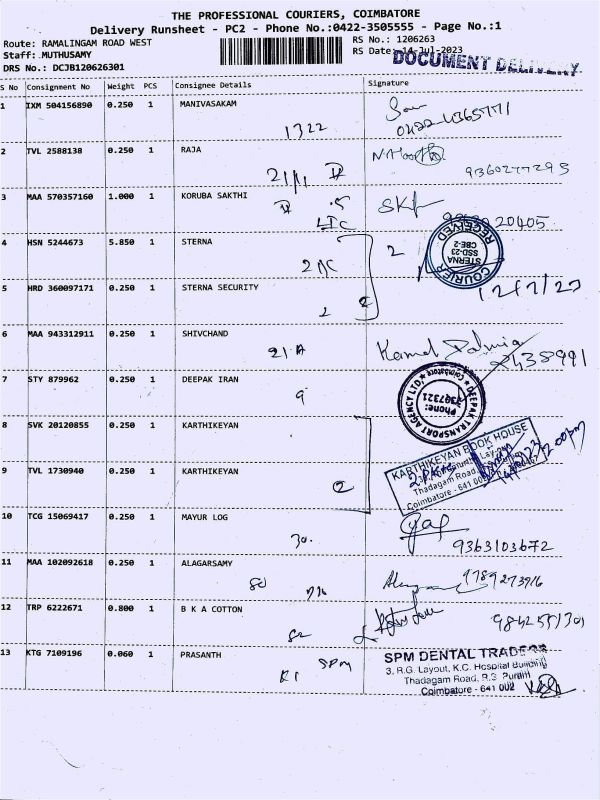 THE PROFESSIONAL COURIERS, COIMBATORE
Delivery Runsheet - PC2 - Phone No.:0422-3505555 - Page No.:1
Route: RAMALINGAM ROAD WEST
RS No.: 1206263
Staff: MUTHUSAMY
RS Date: 14-Jul-2023
DOCUMENT DELIVERY
DRS No.: DCJB120626301
S No Consignment No Weight PCS Consignee Details Signature
1 IXM 504156890 0.250 1 MANIVASAKAM
1322
2 TVL 2588138 0.250 1 RAJA
21/1
9360277295
3 MAA 570357160 1.000 1 KORUBA SAKTHI
SKR
LIC
20405
4 HSN 5244673 5.850 1 STERNA
2
COURIER RECEIVED
STERNA
SSD-23
CBE-2
5 HRD 360097171 0.250 1 STERNA SECURITY
2
6 MAA 943312911 0.250 1 SHIVCHAND
21 A
2438991
7 STY 879962 0.250 1 DEEPAK IRAN
9
DEEPAK TRANSPORT AGENCY LTD.
Coimbatore
Phone:
2397321
8 SVK 20120855 0.250 1 KARTHIKEYAN
KARTHIKEYAN BOOK HOUSE
9 TVL 1730940 0.250 1 KARTHIKEYAN
2
Thadagam Road
Coimbatore - 641 002
10 TCG 15069417 0.250 1 MAYUR LOG
30.
9363103672
11 MAA 102092618 0.250 1 ALAGARSAMY
9789273916
12 TRP 6222671 0.800 1 B K A COTTON
82
9842551301
13 KTG 7109196 0.060 1 PRASANTH
SPM
SPM DENTAL TRADERS
3, R.G. Layout, K.C. Hospital Building
Thadagam Road, R.S. Puram
Coimbatore - 641 002